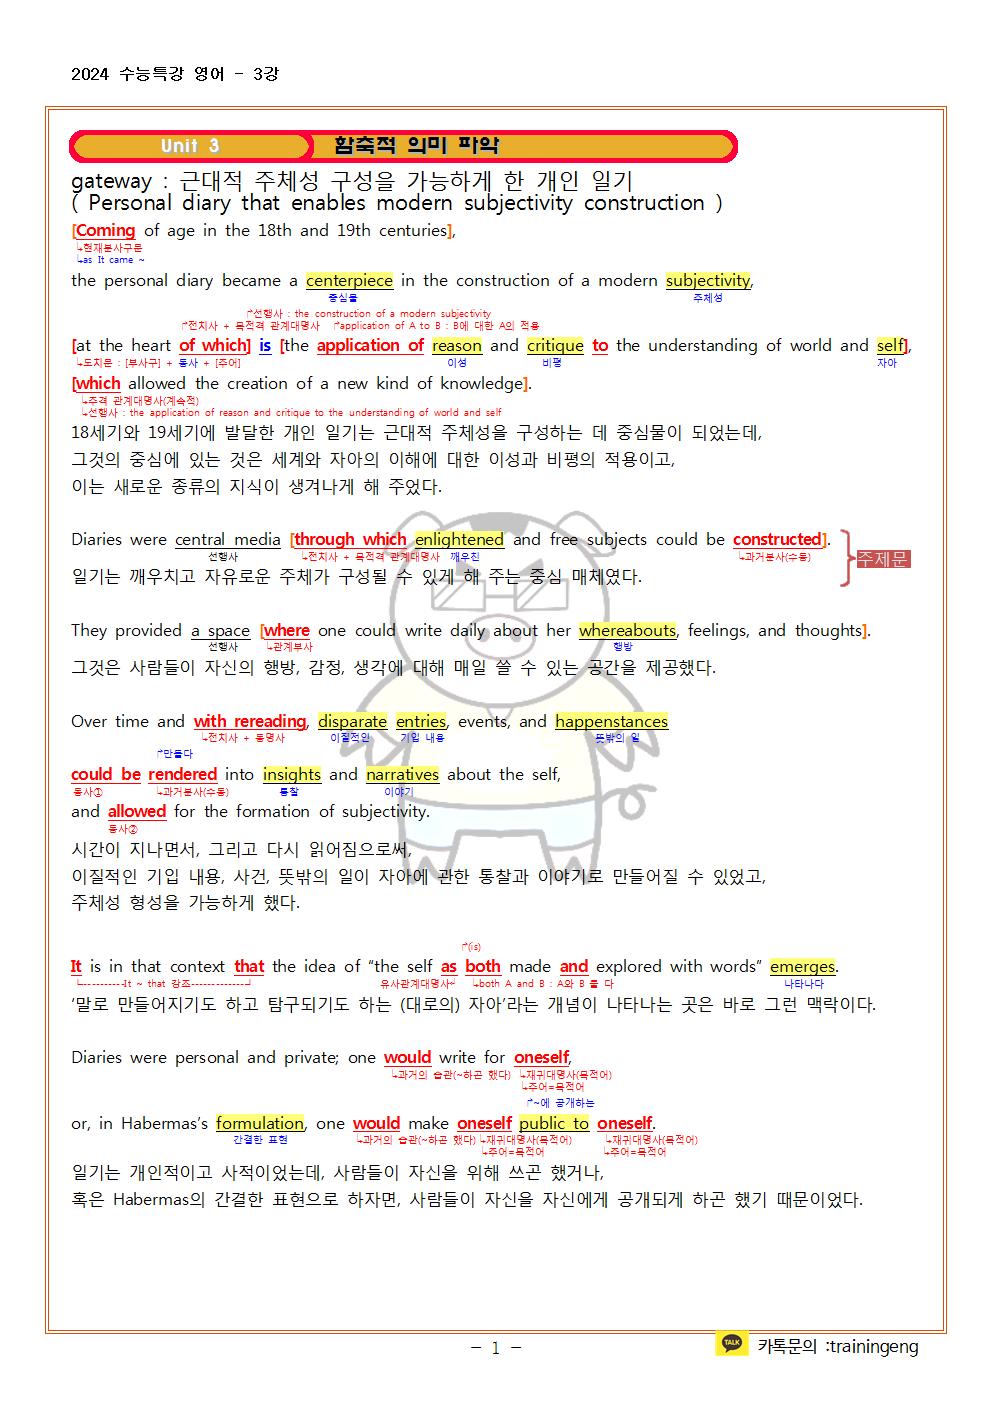 2024 수능특강 영어 - 3강
Unit 3 함축적 의미 파악
gateway : 근대적 주체성 구성을 가능하게 한 개인 일기
( Personal diary that enables modern subjectivity construction )
[Coming of age in the 18th and 19th centuries],
↳현재분사구문
↳as It came ~
the personal diary became a centerpiece in the construction of a modern subjectivity,
중심물 주체성
↱선행사 : the construction of a modern subjectivity
↱전치사 + 목적격 관계대명사 ↱application of A to B : B에 대한 A의 적용
[at the heart of which] is [the application of reason and critique to the understanding of world and self],
↳도치문 : [부사구] + 동사 + [주어] 이성 비평 자아
[which allowed the creation of a new kind of knowledge].
↳주격 관계대명사(계속적)
↳선행사 : the application of reason and critique to the understanding of world and self
18세기와 19세기에 발달한 개인 일기는 근대적 주체성을 구성하는 데 중심물이 되었는데,
그것의 중심에 있는 것은 세계와 자아의 이해에 대한 이성과 비평의 적용이고,
이는 새로운 종류의 지식이 생겨나게 해 주었다.
Diaries were central media [through which enlightened and free subjects could be constructed].
선행사 ↳전치사 + 목적격 관계대명사 깨우친 ↳과거분사(수동)
주제문
일기는 깨우치고 자유로운 주체가 구성될 수 있게 해 주는 중심 매체였다.
They provided a space [where one could write daily about her whereabouts, feelings, and thoughts].
선행사 ↳관계부사 행방
그것은 사람들이 자신의 행방, 감정, 생각에 대해 매일 쓸 수 있는 공간을 제공했다.
Over time and with rereading, disparate entries, events, and happenstances
↳전치사 + 동명사 이질적인 기입 내용 뜻밖의 일
↱만들다
could be rendered into insights and narratives about the self,
동사① ↳과거분사(수동) 통찰 이야기
and allowed for the formation of subjectivity.
동사②
시간이 지나면서, 그리고 다시 읽어짐으로써,
이질적인 기입 내용, 사건, 뜻밖의 일이 자아에 관한 통찰과 이야기로 만들어질 수 있었고,
주체성 형성을 가능하게 했다.
↱(is)
It is in that context that the idea of “the self as both made and explored with words” emerges.
┗----------It ~ that 강조-------------┛ 유사관계대명사↵ ↳both A and B : A와 B 둘 다 나타나다
‘말로 만들어지기도 하고 탐구되기도 하는 (대로의) 자아’라는 개념이 나타나는 곳은 바로 그런 맥락이다.
Diaries were personal and private; one would write for oneself,
↳과거의 습관(~하곤 했다) ↳재귀대명사(목적어)
↳주어=목적어
↱~에 공개하는
or, in Habermas’s formulation, one would make oneself public to oneself.
간결한 표현 ↳과거의 습관(~하곤 했다) ↳재귀대명사(목적어) ↳재귀대명사(목적어)
↳주어=목적어 ↳주어=목적어
일기는 개인적이고 사적이었는데, 사람들이 자신을 위해 쓰곤 했거나,
혹은 Habermas의 간결한 표현으로 하자면, 사람들이 자신을 자신에게 공개되게 하곤 했기 때문이었다.
- 1 -
TALK 카톡문의 :trainingeng